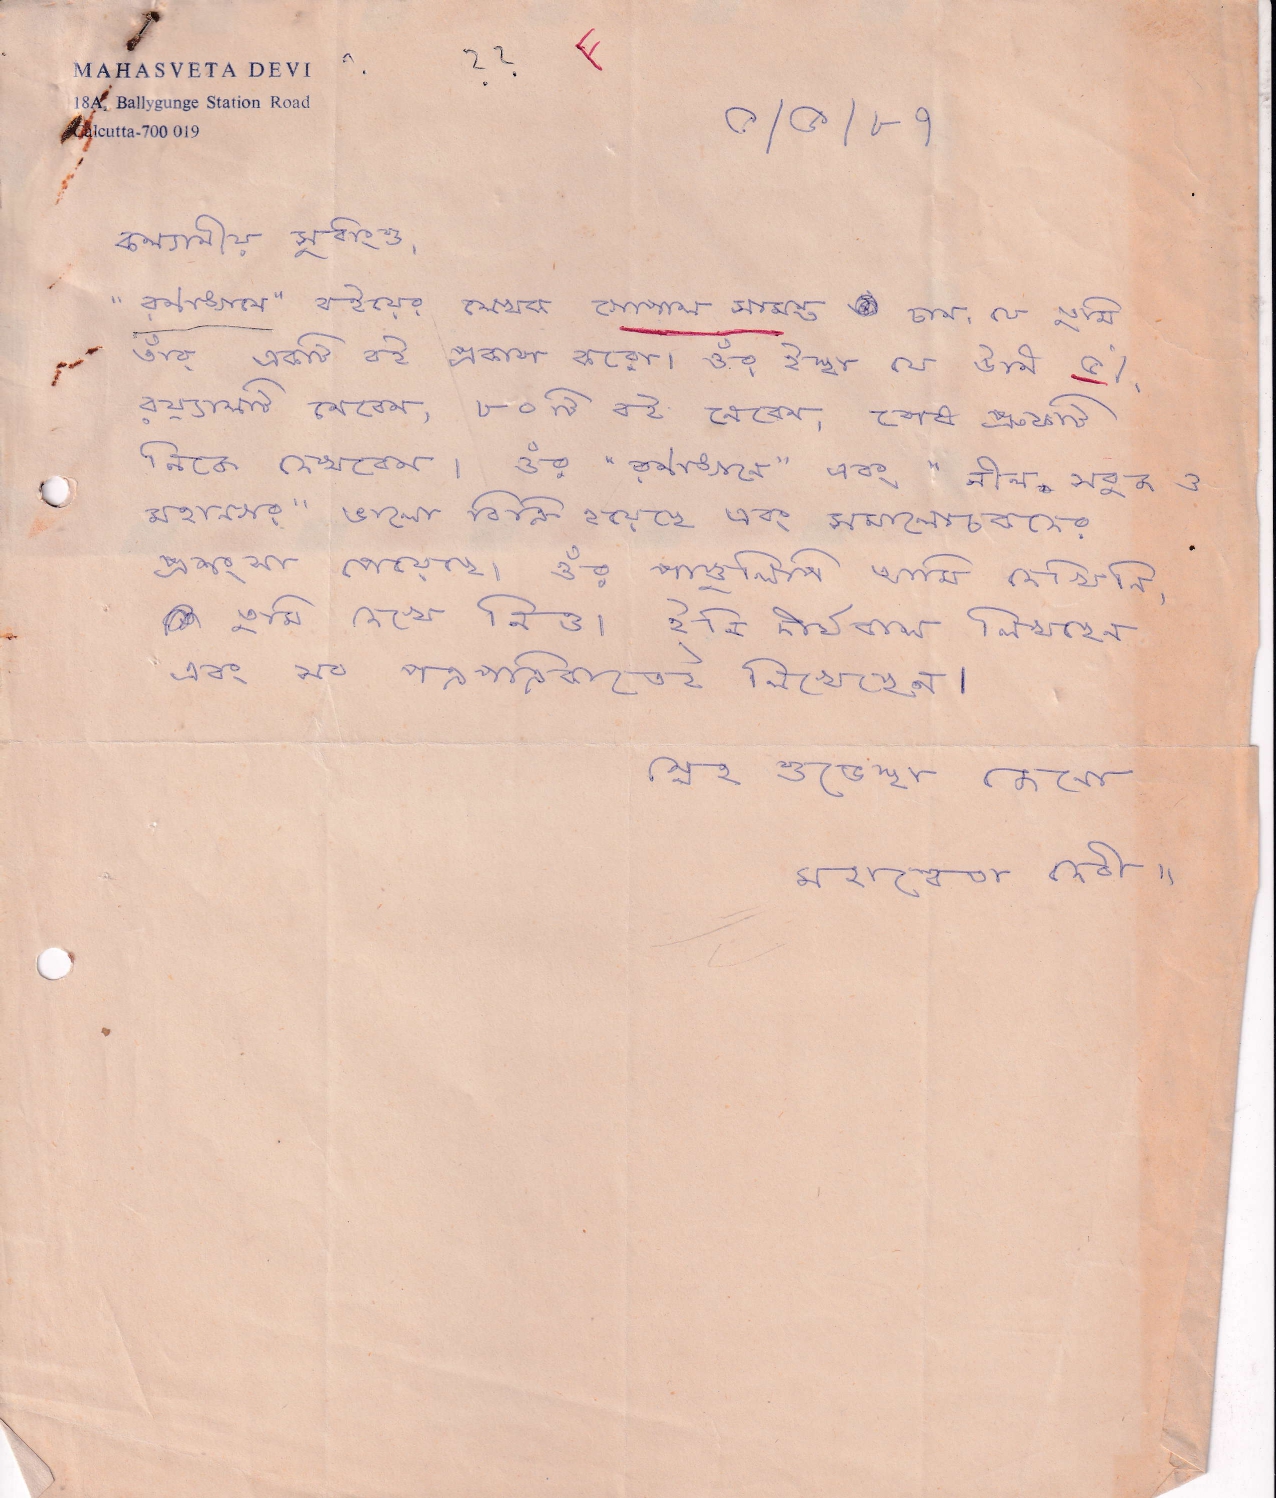 MAHASVETA DEVI
18A, Ballygunge Station Road
Calcutta-700 019
??
F
৫/৫/৮৭
কল্যাণীয় সুধাংশু,
" বইয়ের লেখক গোপাল সামন্ত চান, যে তুমি
তাঁর একটি বই প্রকাশ করো। ওঁর ইচ্ছা যে উনি ৫%
রয়্যালটি নেবেন, ৮০টি বই নেবেন, শেষ প্রুফটি
নিজে দেখবেন। ওঁর " " এবং " নীল, সবুজ ও
" ভালো বিক্রি হয়েছে এবং সমালোচকদের
প্রশংসা পেয়েছে। ওঁর পাণ্ডুলিপি আমি দেখিনি,
তুমি দেখে নিও। ইনি দীর্ঘকাল লিখছেন
এবং সব পত্রপত্রিকাতেই লিখেছেন।
স্নেহ শুভেচ্ছা জেনো
মহাশ্বেতা দেবী॥